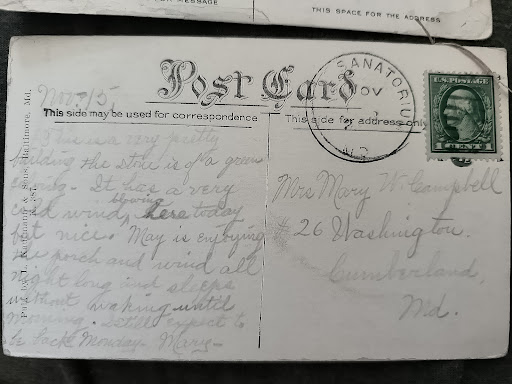 MESSAGE
THIS SPACE FOR THE ADDRESS
Post Card
This side may be used for correspondence
This side for address only
SANATORIUM
NOV
MD.
U.S. POSTAGE
1 CENT 1
Pub. by L. Kaufmann & Sons, Baltimore, Md.
Nov. 15,
This is a very pretty
building the stone is of a green
It has a very
blowing
cold wind, here today
but nice. May is enjoying
the porch and wind all
night long and sleeps
without waking until
morning. Still expect to
be back Monday. Mary-
Mrs Mary W. Campbell
# 26 Washington.
Cumberland,
Md.